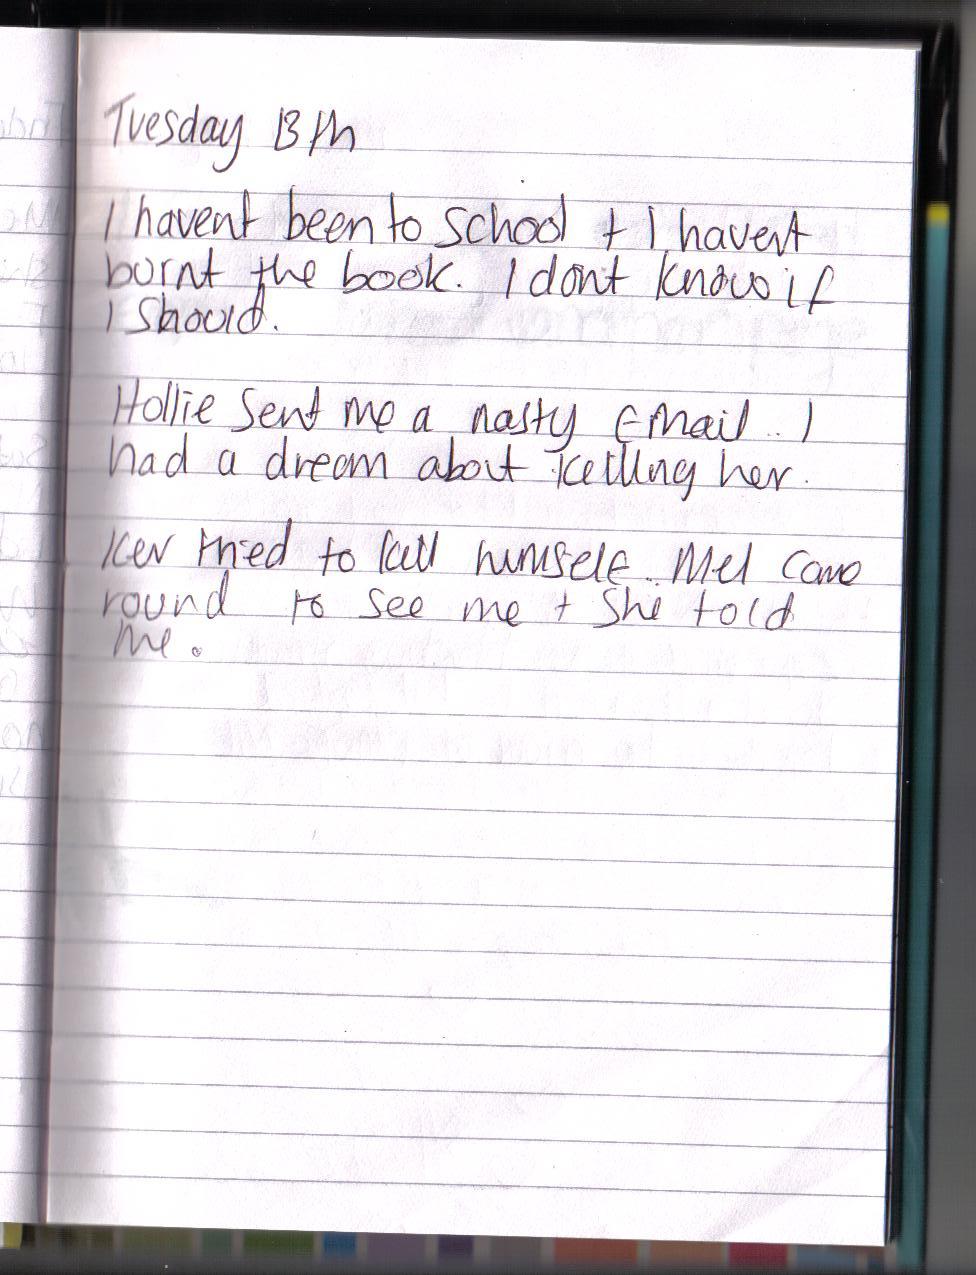 Tuesday 13th
I havent been to school + I havent
burnt the book. I dont know if
I should.
Hollie sent me a nasty email.. I
had a dream about killing her.
Kev tried to kill himself.. Mel came
round to see me + she told
me.